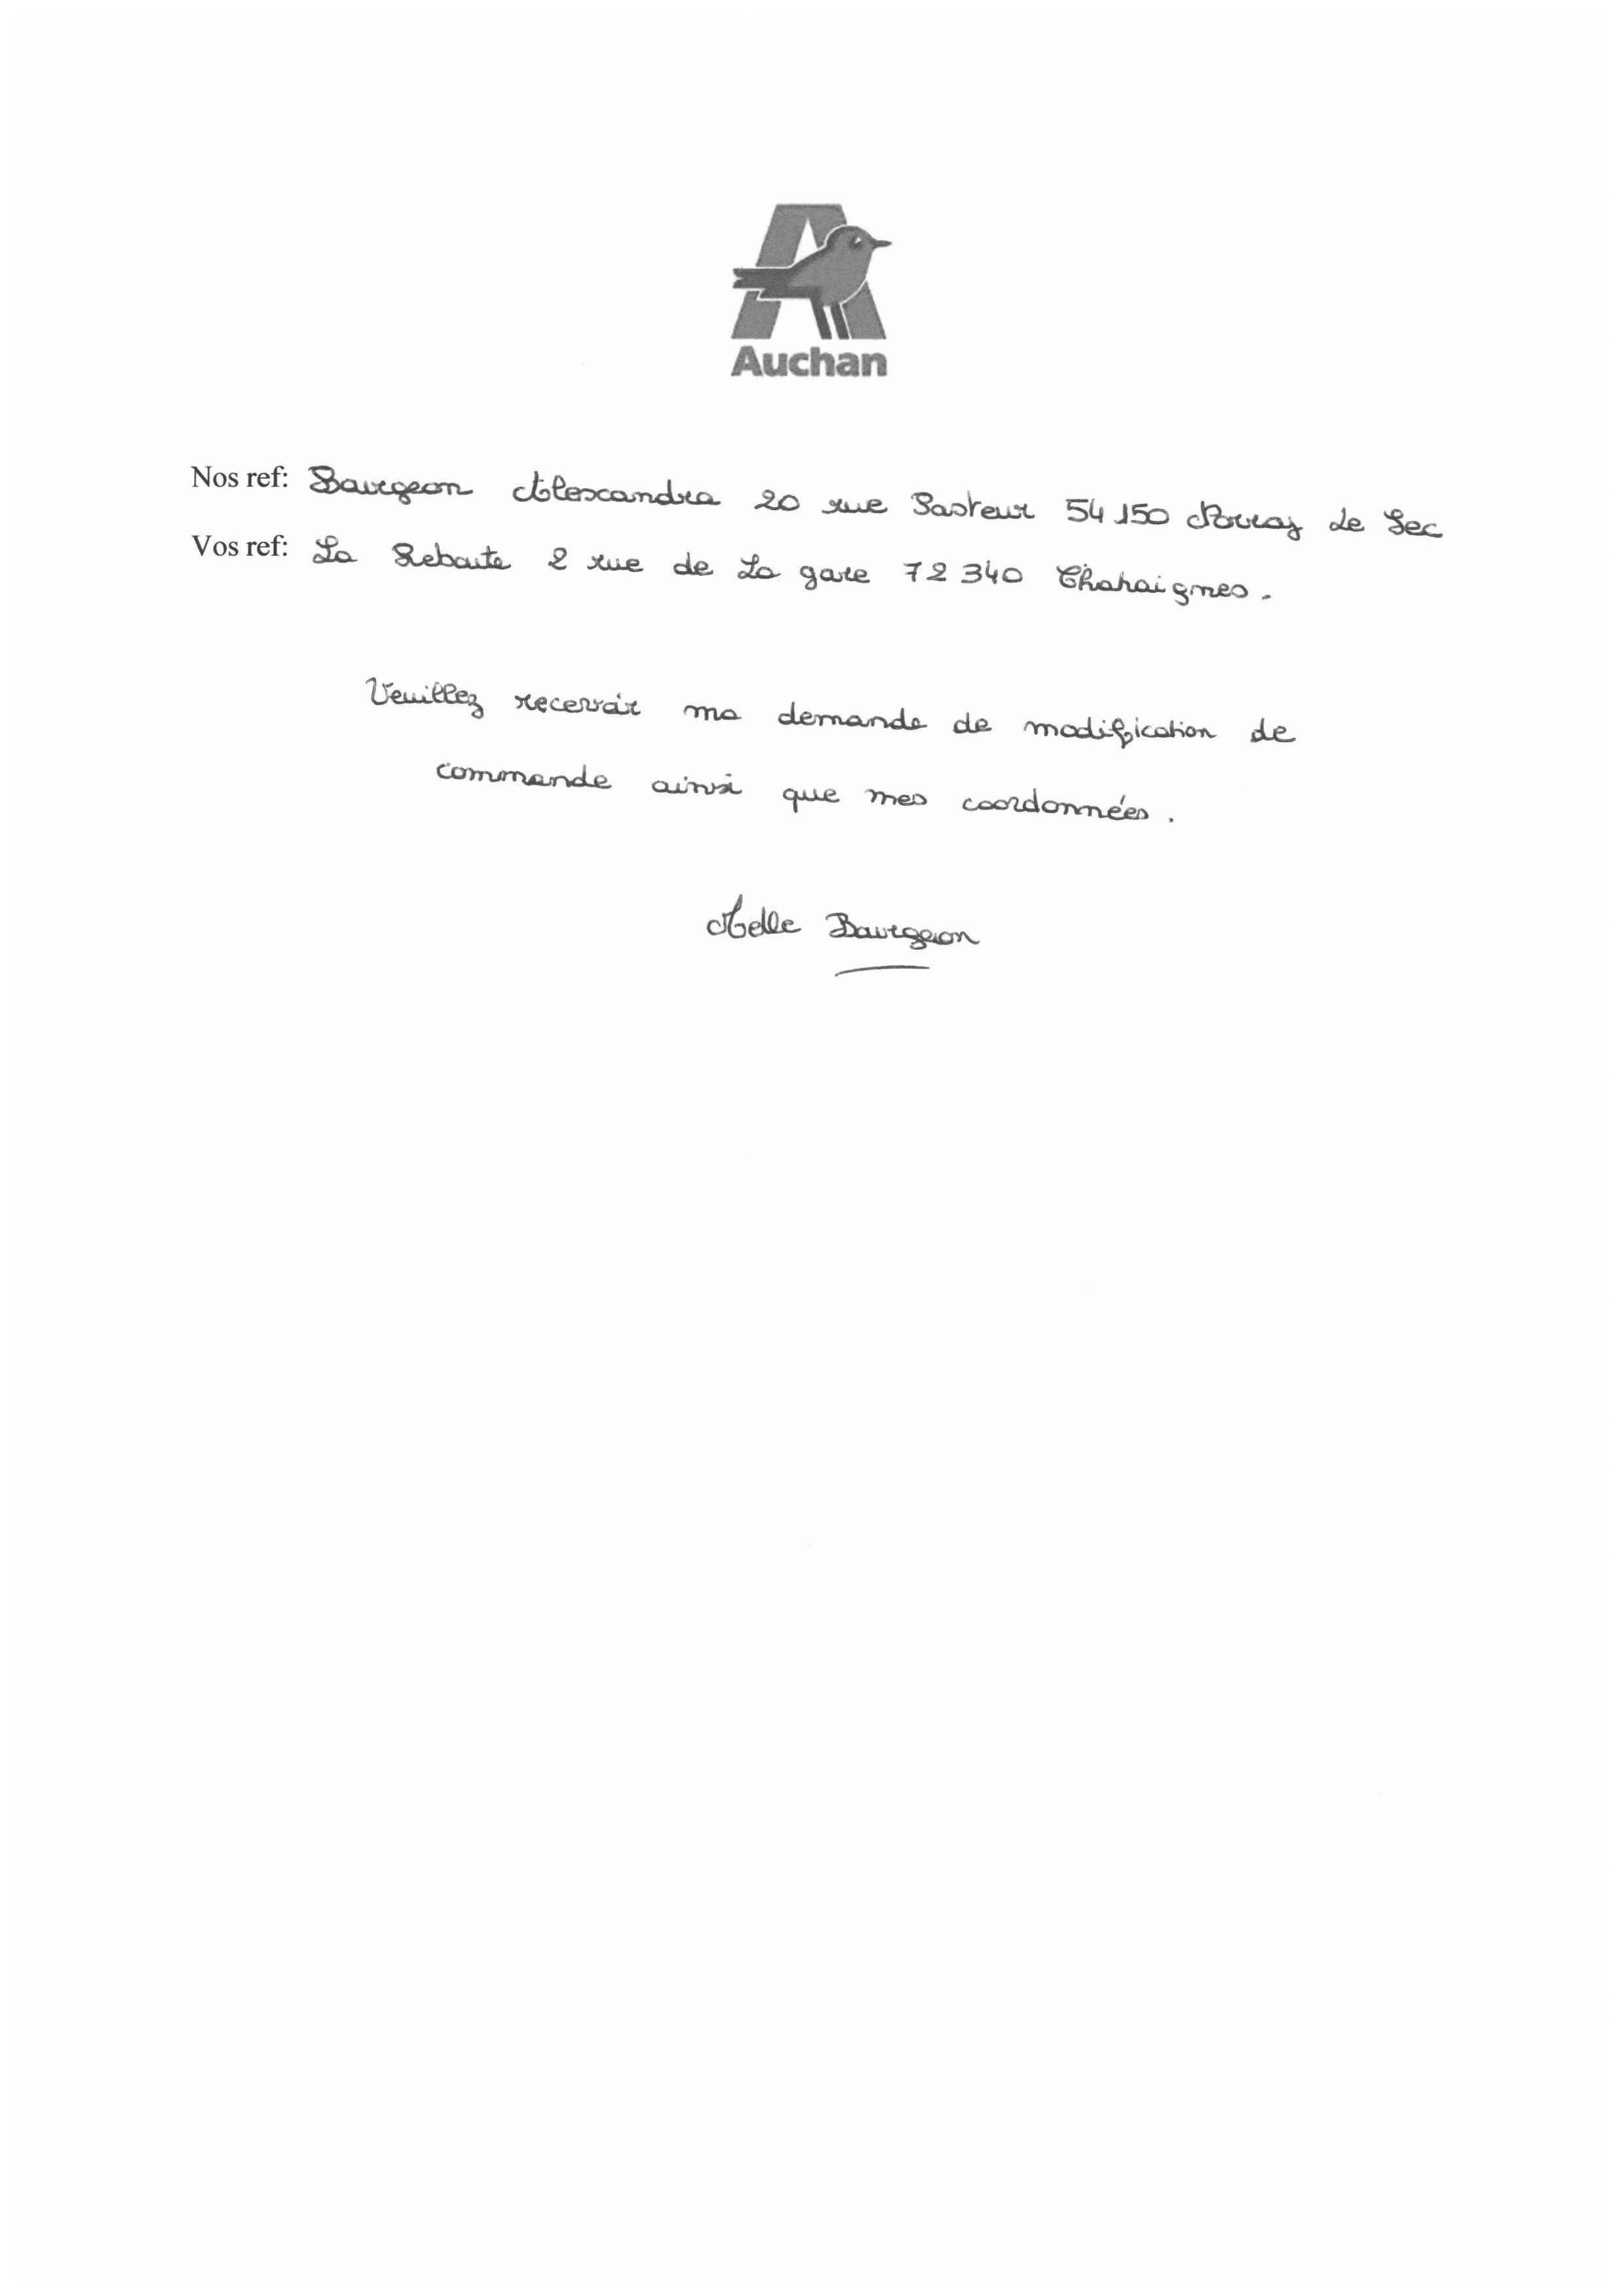 Auchan
Nos ref: Bourgeon Alexandra 20 rue Pasteur 54 150 Norroy Le Sec
Vos ref: La Reboute 2 rue de La gare 72 340 Chahaignes.
Veuillez recevoir ma demande de modification de
commande ainsi que mes coordonnées.
Melle Bourgeon